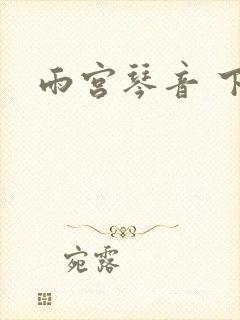 雨宫琴音 下
宛露